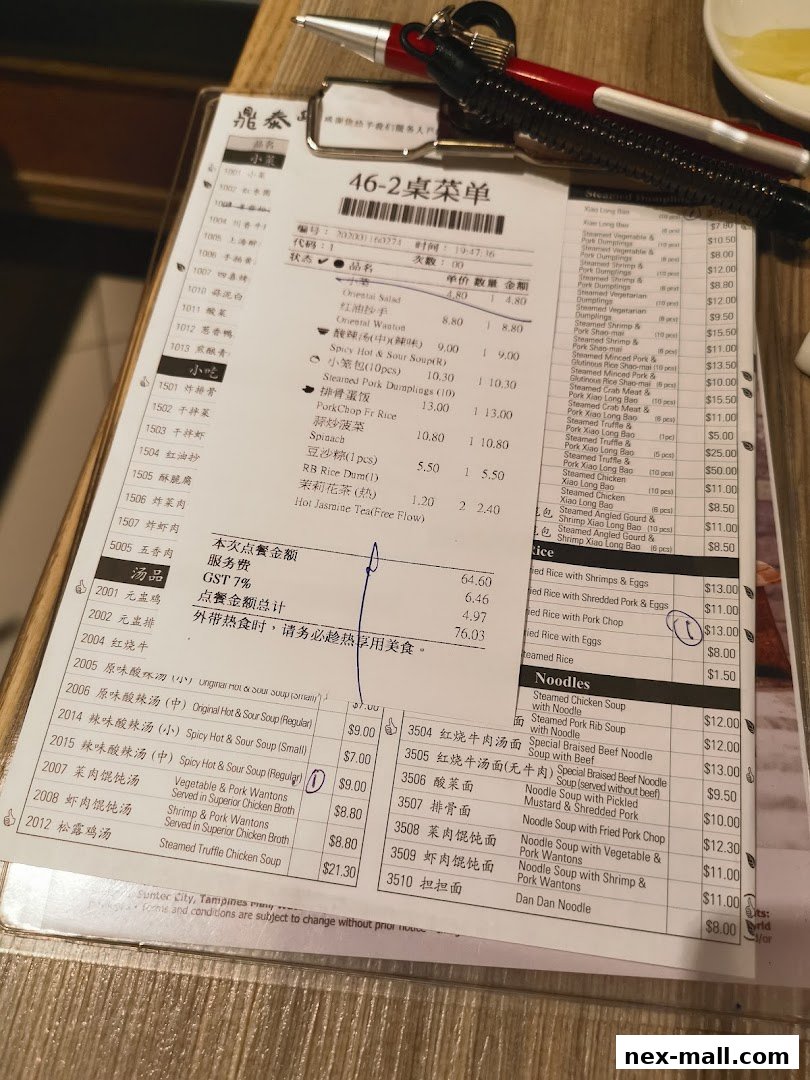 鼎泰
46-2桌菜单
编号: 20200311160274 时间: 19:47:36
代码: 1 次数: 00
状态 品名 单价 数量 金额
Oriental Salad 4.80 1 4.80
红油抄手
Oriental Wanton 8.80 1 8.80
酸辣汤(中)(辣味)
Spicy Hot & Sour Soup(R) 9.00 1 9.00
小笼包(10pcs)
Steamed Pork Dumplings (10) 10.30 1 10.30
排骨蛋饭
PorkChop Fr Rice 13.00 1 13.00
蒜炒菠菜
Spinach 10.80 1 10.80
豆沙粽(1pcs)
RB Rice Dum(1) 5.50 1 5.50
茉莉花茶 (热)
Hot Jasmine Tea(Free Flow) 1.20 2 2.40
本次点餐金额 64.60
服务费 6.46
GST 7% 4.97
点餐金额总计 76.03
外带热食时，请务必趁热享用美食。
品名
小菜
1001 小菜
1002
1004 川香牛
1005 上海醉
1006
1007 四喜烤
1010 蒜泥白
1011 酸菜
1012 葱香鸭
1013
小吃
1501 炸排骨
1502 干拌菜
1503 干拌虾
1504 红油抄
1505 酥脆腐
1506 炸菜肉
1507 炸虾肉
5005 五香肉
汤品
2001 元盅鸡
2002 元盅排
2004 红烧牛
2005 原味酸辣汤 (小) Original Hot & Sour Soup (Small) $7.00
2006 原味酸辣汤 (中) Original Hot & Sour Soup (Regular) $9.00
2014 辣味酸辣汤 (小) Spicy Hot & Sour Soup (Small) $7.00
2015 辣味酸辣汤 (中) Spicy Hot & Sour Soup (Regular) 1 $9.00
2007 菜肉馄饨汤 Vegetable & Pork Wantons
Served in Superior Chicken Broth $8.80
2008 虾肉馄饨汤 Shrimp & Pork Wantons
Served in Superior Chicken Broth $8.80
2012 松露鸡汤 Steamed Truffle Chicken Soup $21.30
Steamed Dumpl
Xiao Long Bao (10 pcs)
Xiao Long Bao (6 pcs) $7.80
Steamed Vegetable &
Pork Dumplings (10 pcs) $10.50
Steamed Vegetable &
Pork Dumplings $8.00
Steamed Shrimp &
Pork Dumplings (10 pcs) $12.00
Steamed Shrimp &
Pork Dumplings $8.80
Steamed Vegetarian
Dumplings (10 pcs) $12.00
Steamed Vegetarian
Dumplings (6 pcs) $9.50
Steamed Shrimp &
Pork Shao-mai (10 pcs) $15.50
Steamed Shrimp &
Pork Shao-mai $11.00
Steamed Minced Pork &
Glutinous Rice Shao-mai (10 pcs) $13.50
Steamed Minced Pork &
Glutinous Rice Shao-mai (6 pcs) $10.00
Steamed Crab Meat &
Pork Xiao Long Bao (10 pcs) $15.50
Steamed Crab Meat &
Pork Xiao Long Bao (6 pcs) $11.00
Steamed Truffle &
Pork Xiao Long Bao (1pc) $5.00
Steamed Truffle &
Pork Xiao Long Bao (5 pcs) $25.00
Steamed Truffle &
Pork Xiao Long Bao (10 pcs) $50.00
Steamed Chicken
Xiao Long Bao (10 pcs) $11.00
Steamed Chicken
Xiao Long Bao (6 pcs) $8.50
Steamed Angled Gourd &
Shrimp Xiao Long Bao (10 pcs) $11.00
Steamed Angled Gourd &
Shrimp Xiao Long Bao (6 pcs) $8.50
Rice
ied Rice with Shrimps & Eggs $13.00
ied Rice with Shredded Pork & Eggs $11.00
ied Rice with Pork Chop 1 $13.00
ied Rice with Eggs $8.00
teamed Rice $1.50
Noodles
Steamed Chicken Soup
with Noodle $12.00
面 Steamed Pork Rib Soup
with Noodle $12.00
3504 红烧牛肉汤面 Special Braised Beef Noodle
Soup with Beef $13.00
3505 红烧牛肉汤面(无牛肉) Special Braised Beef Noodle
Soup (served without beef) $9.50
3506 酸菜面 Noodle Soup with Pickled
Mustard & Shredded Pork $10.00
3507 排骨面 Noodle Soup with Fried Pork Chop $12.30
3508 菜肉馄饨面 Noodle Soup with Vegetable &
Pork Wantons $11.00
3509 虾肉馄饨面 Noodle Soup with Shrimp &
Pork Wantons $11.00
3510 担担面 Dan Dan Noodle $8.00
Suntec City, Tampines Mall,
Terms and conditions are subject to change without prior notice
nex-mall.com